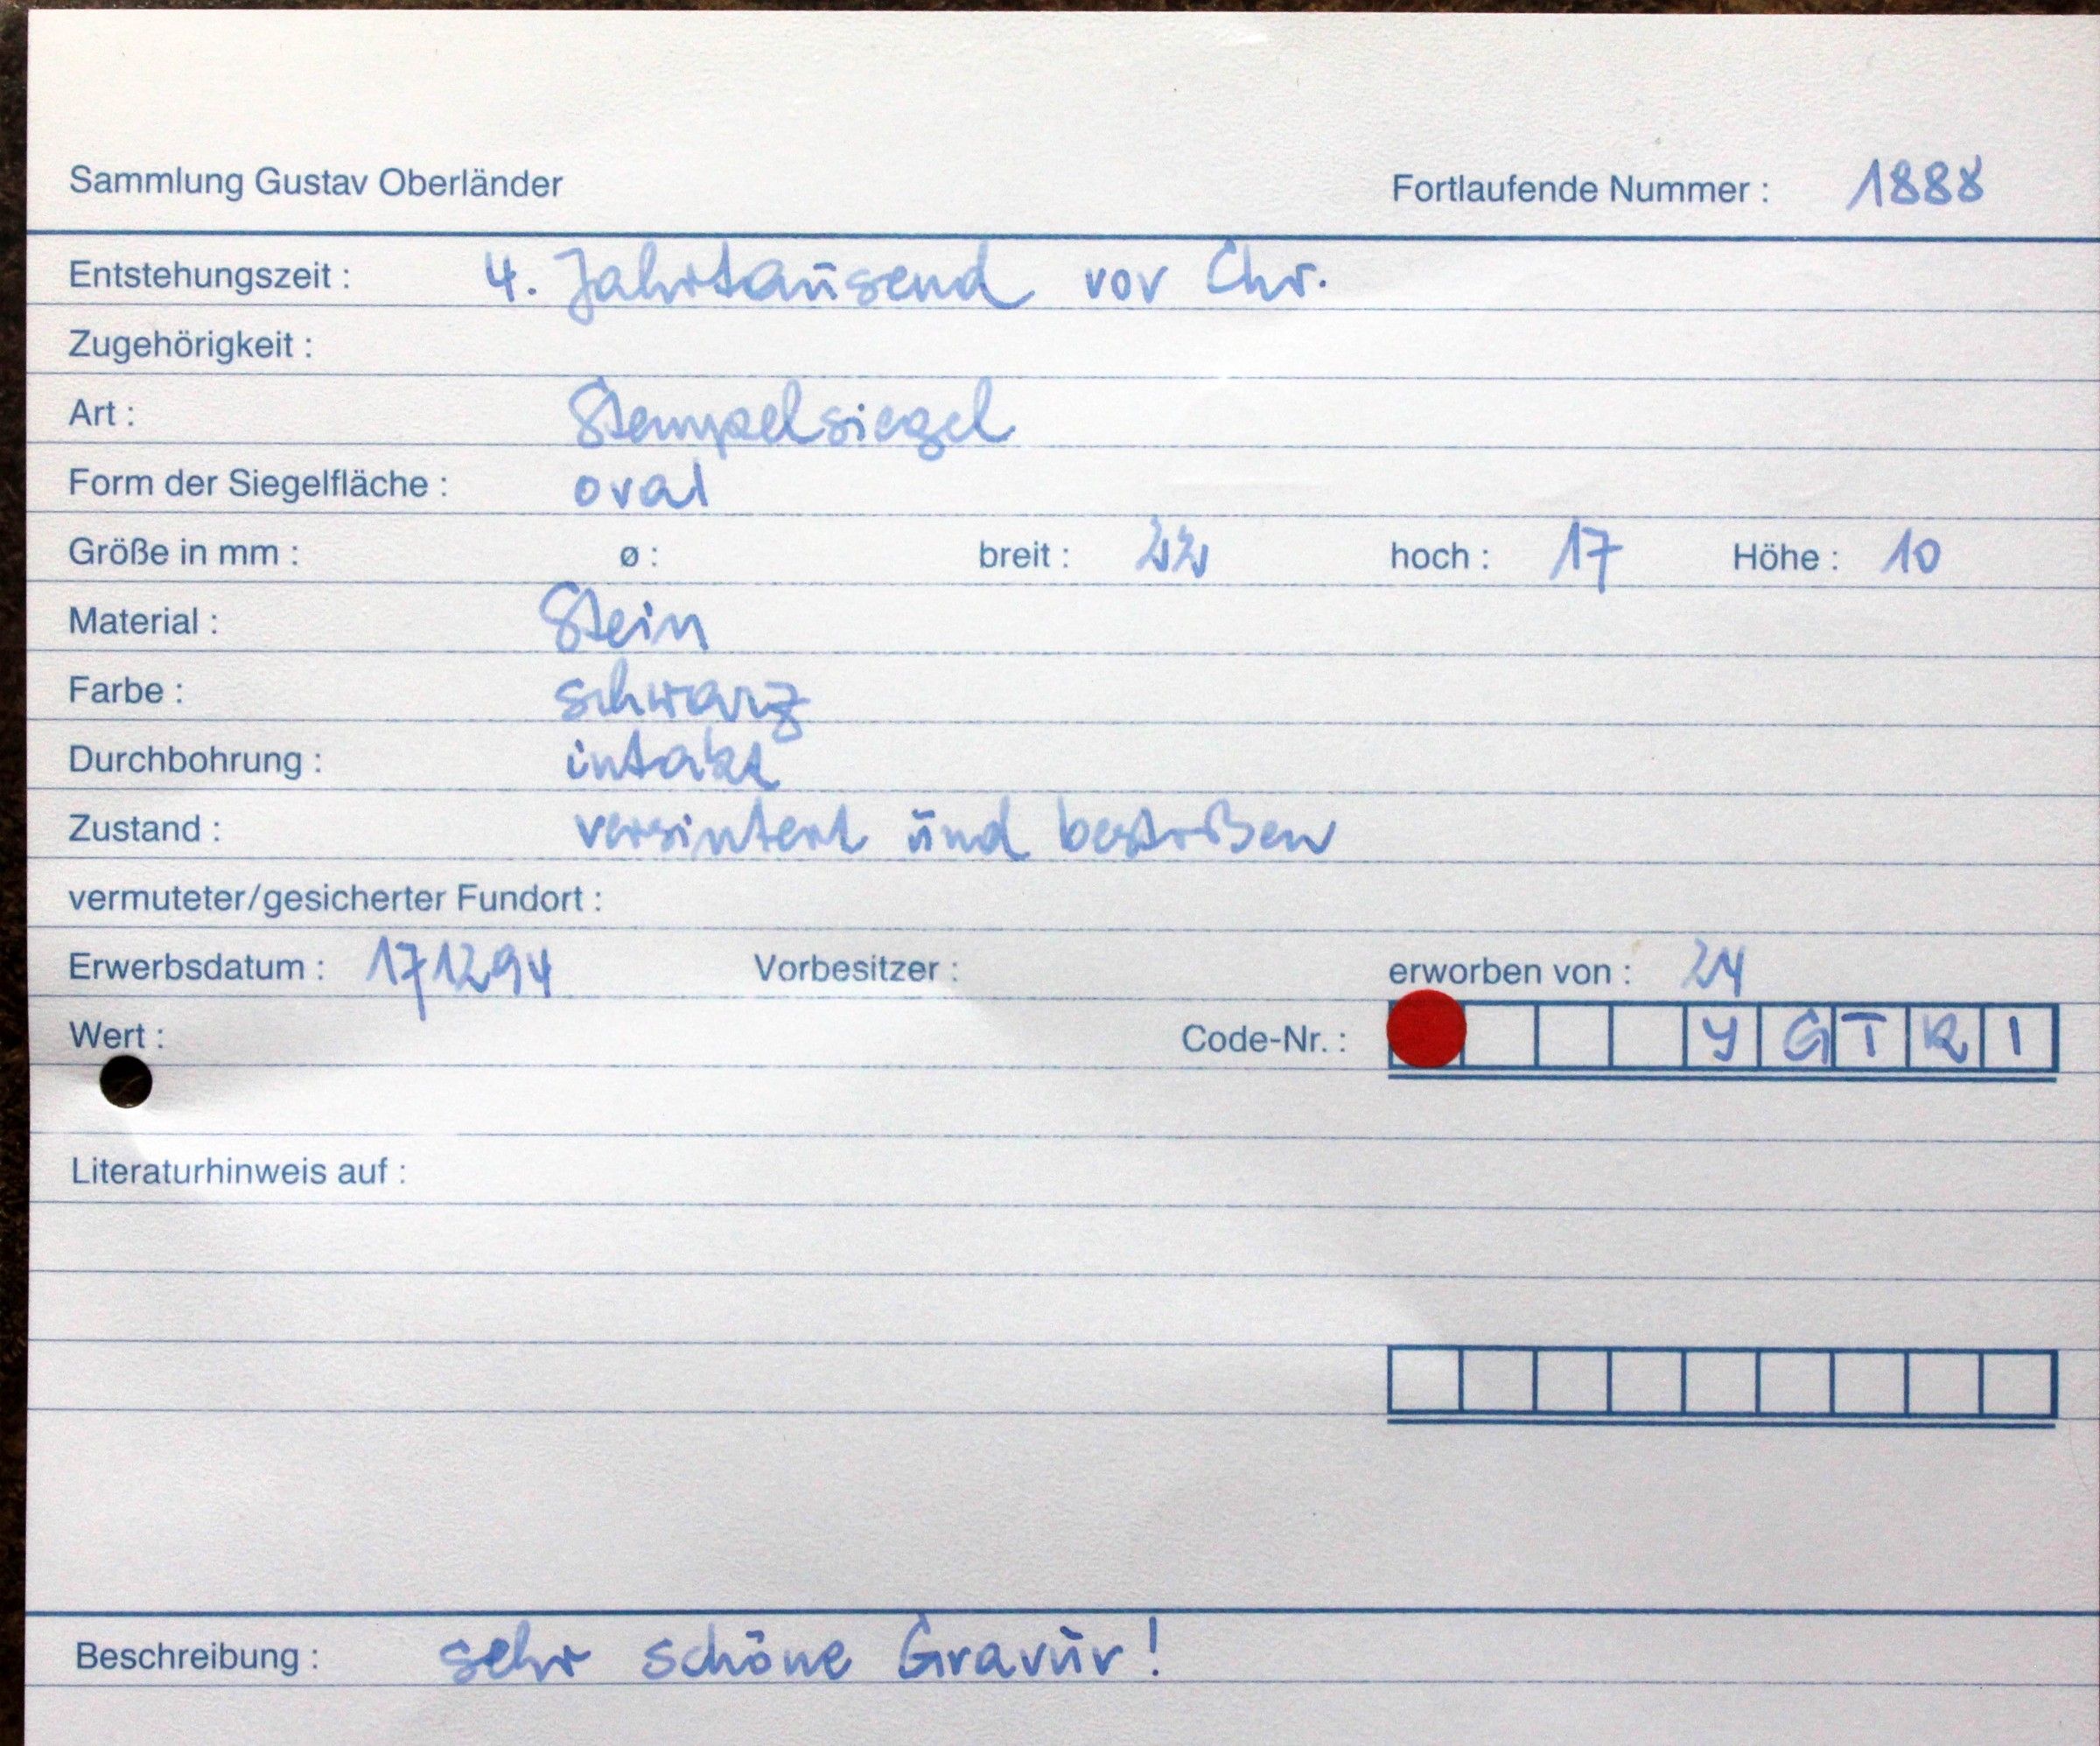 Sammlung Gustav Oberländer Fortlaufende Nummer : 1888
Entstehungszeit : 4. Jahrtausend vor Chr.
Zugehörigkeit :
Art : Stempelsiegel
Form der Siegelfläche : oval
Größe in mm : ø : breit : 22 hoch : 17 Höhe : 10
Material : Stein
Farbe : schwarz
Durchbohrung : intakt
Zustand : versintert und bestoßen
vermuteter/gesicherter Fundort :
Erwerbsdatum : 171294 Vorbesitzer : erworben von : 24
Wert : Code-Nr. : Y G T R I
Literaturhinweis auf :
Beschreibung : sehr schöne Gravur!